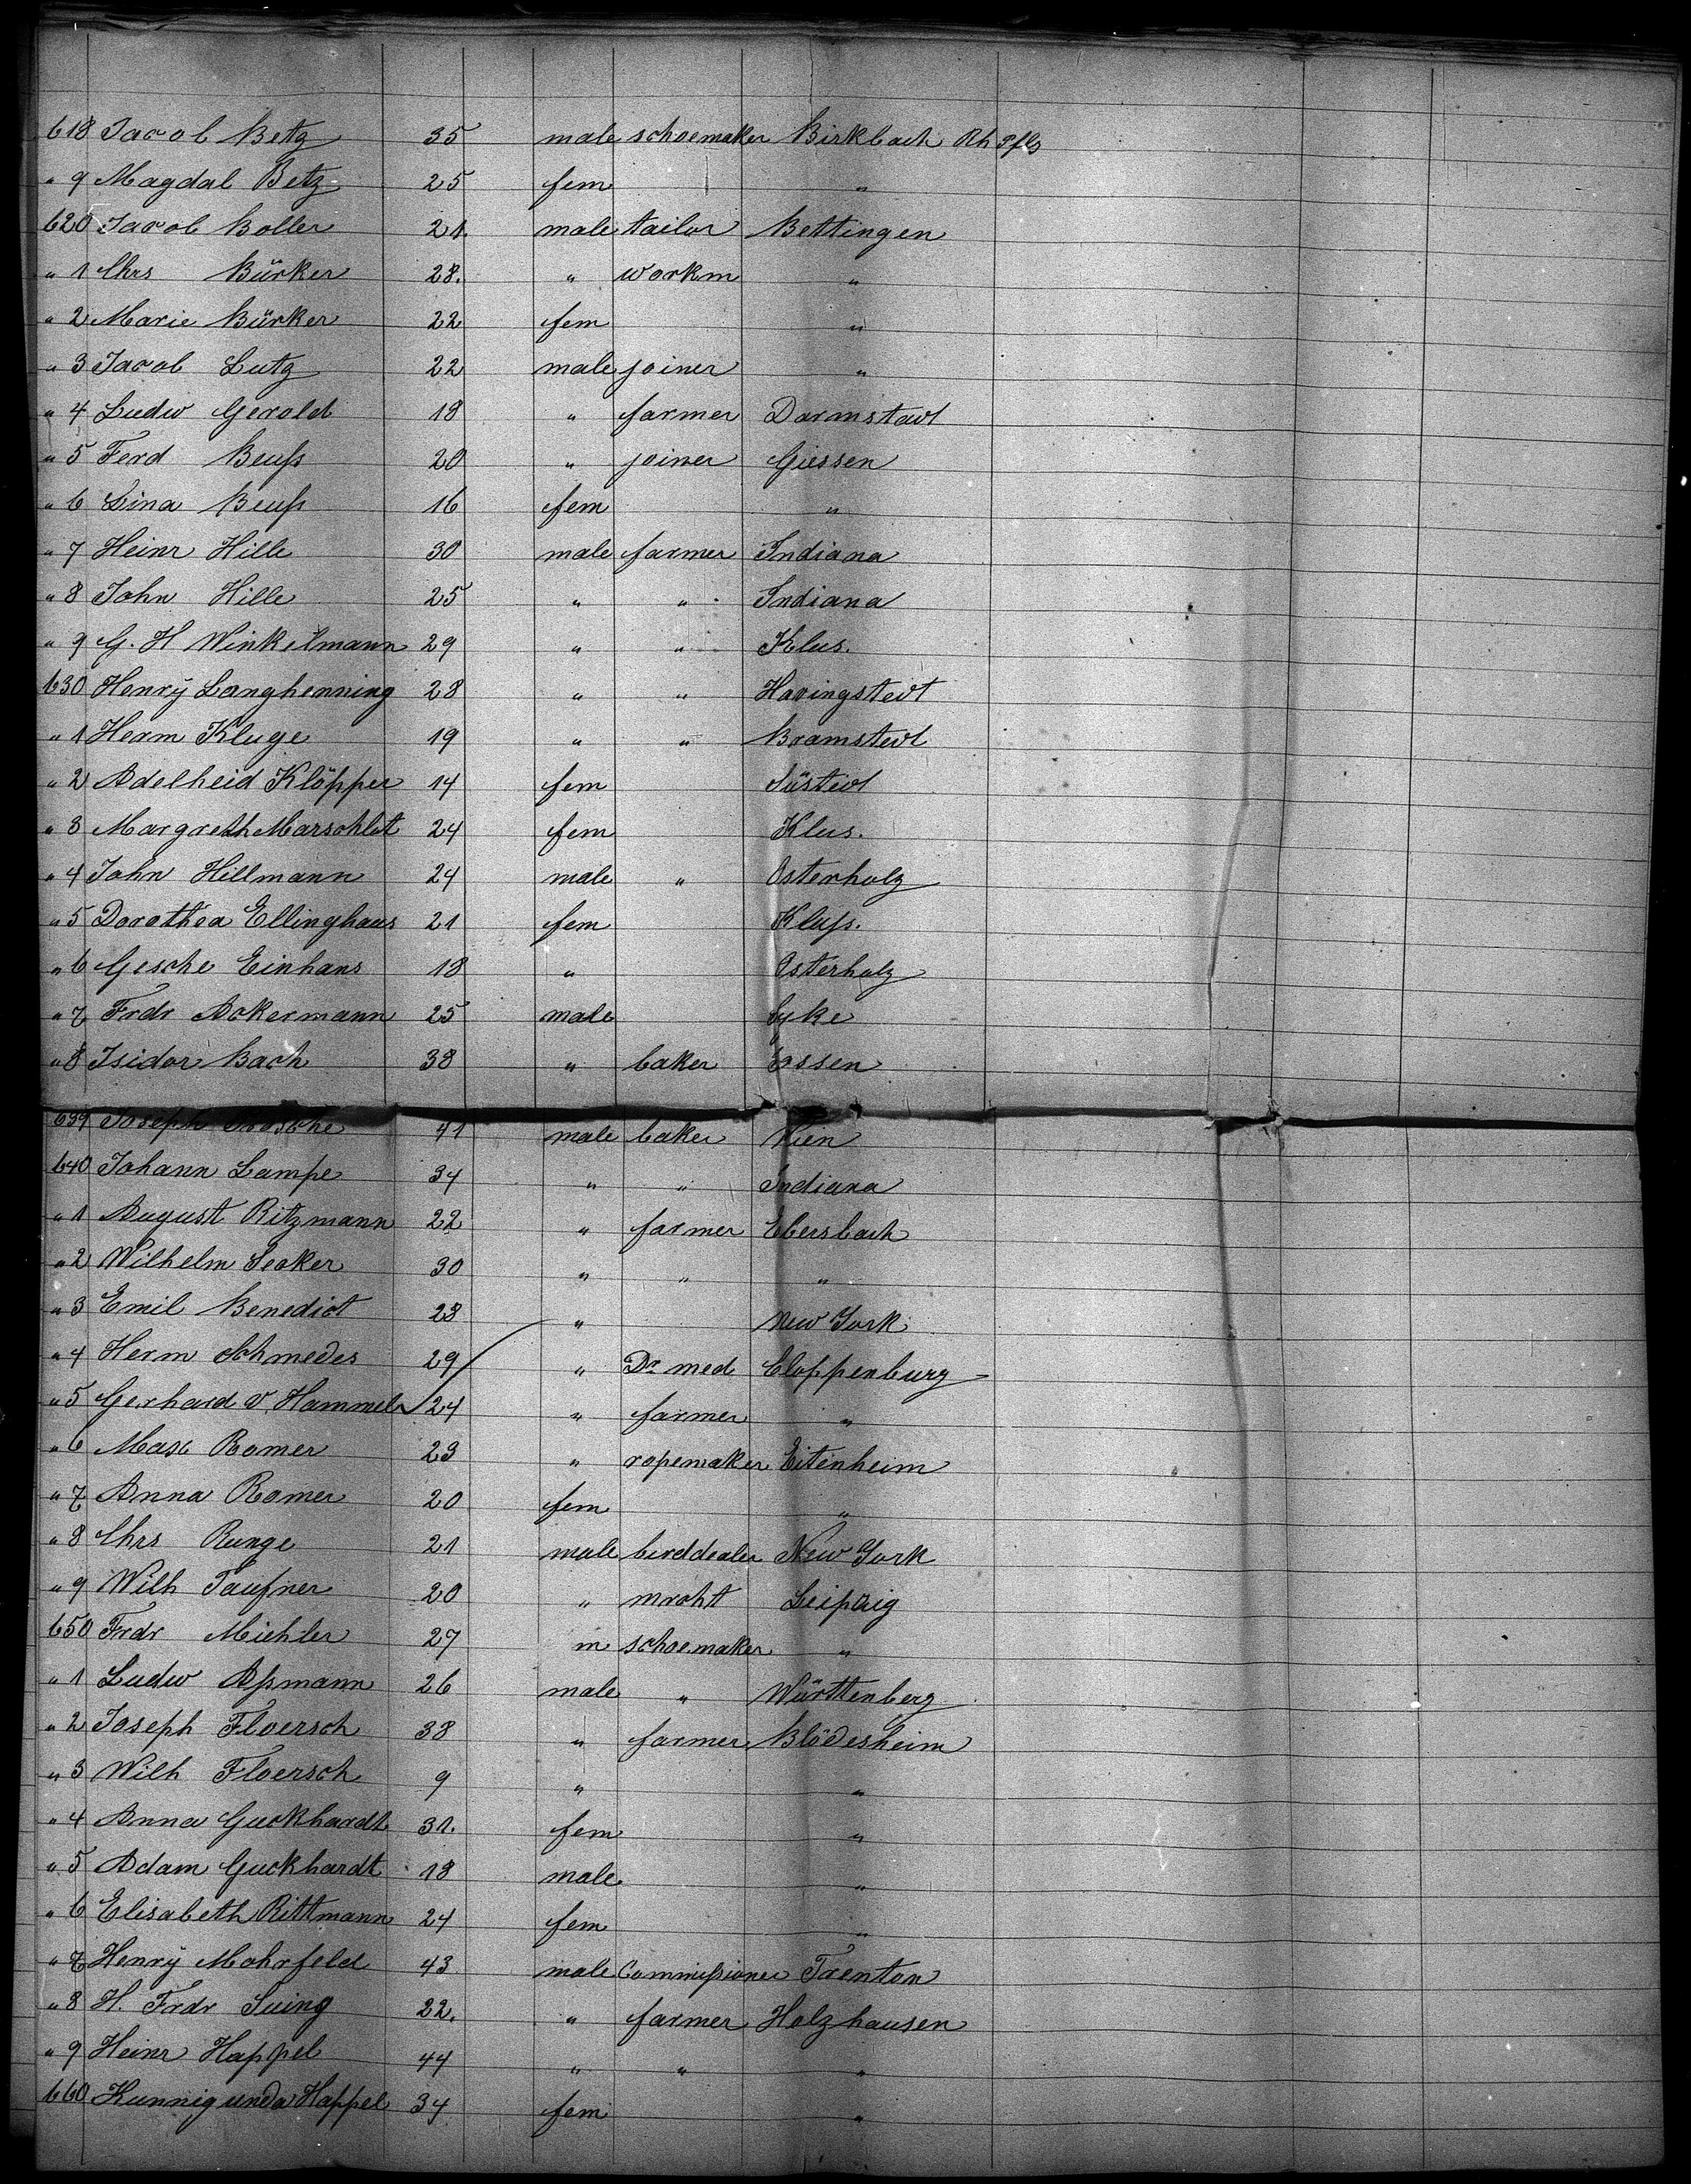 618 Jacob Betz 35 male schoemaker Birkbach Rh Pflz
" 9 Magdal Betz 25 fem "
620 Jacob Boller 21. male tailor Bettingen
" 1 Chrs Bürker 28. " workm "
" 2 Marie Bürker 22 fem "
" 3 Jacob Lutz 22 male joiner "
" 4 Ludw Gerold 18 " farmer Darmstadt
" 5 Ferd Beuſs 20 " joiner Giessen
" 6 Lina Beuſs 16 fem "
" 7 Heinr Hille 30 male farmer Indiana
" 8 John Hille 25 " " Indiana
" 9 G. H Winkelmann 29 " " Klus.
630 Henry Langhenning 28 " " Havingstedt
" 1 Herm Kluge 19 " " Bramstedt
" 2 Adelheid Klöpper 14 fem Süstedt
" 3 Margreth Marschlet 24 fem Klus.
" 4 John Hillmann 24 male " Osterholz
" 5 Dorothea Ellinghaus 21 fem Kluſs.
" 6 Gesche Einhans 18 " Osterholz
" 7 Frdr Ackermann 25 male Syke
" 8 Isidor Bach 38 " baker Essen
639 Joseph 41 male baker Wien
640 Johann Lampe 34 " " Indiana
" 1 August Ritzmann 22 " farmer Ebersbach
" 2 Wilhelm Secker 30 " " "
" 3 Emil Benedict 28 " New York
" 4 Herm Schmedes 29 " Dr med Cloppenburg
" 5 Gerhard v. Hammel 24 " farmer "
" 6 Max Romer 23 " ropemaker Eitenheim
" 7 Anna Romer 20 fem "
" 8 Chrs Runge 21 male birddealer New York
" 9 Wilh Taufner 20 " mrcht Leipzig
650 Frdr Miehler 27 m schoemaker "
" 1 Ludw Aſsmann 26 male " Württenberg
" 2 Joseph Floersch 38 " farmer Blödesheim
" 3 Wilh Floersch 9 " "
" 4 Anna Guckhardt 31. fem "
" 5 Adam Guckhardt 18 male "
" 6 Elisabeth Rittmann 24 fem "
" 7 Henry Mohrfeld 43 male Commiſsioner Trenton
" 8 H. Frdr Suing 22. " farmer Holzhausen
" 9 Heinr Happel 44 " " "
660 Kunnigunda Happel 34 fem "